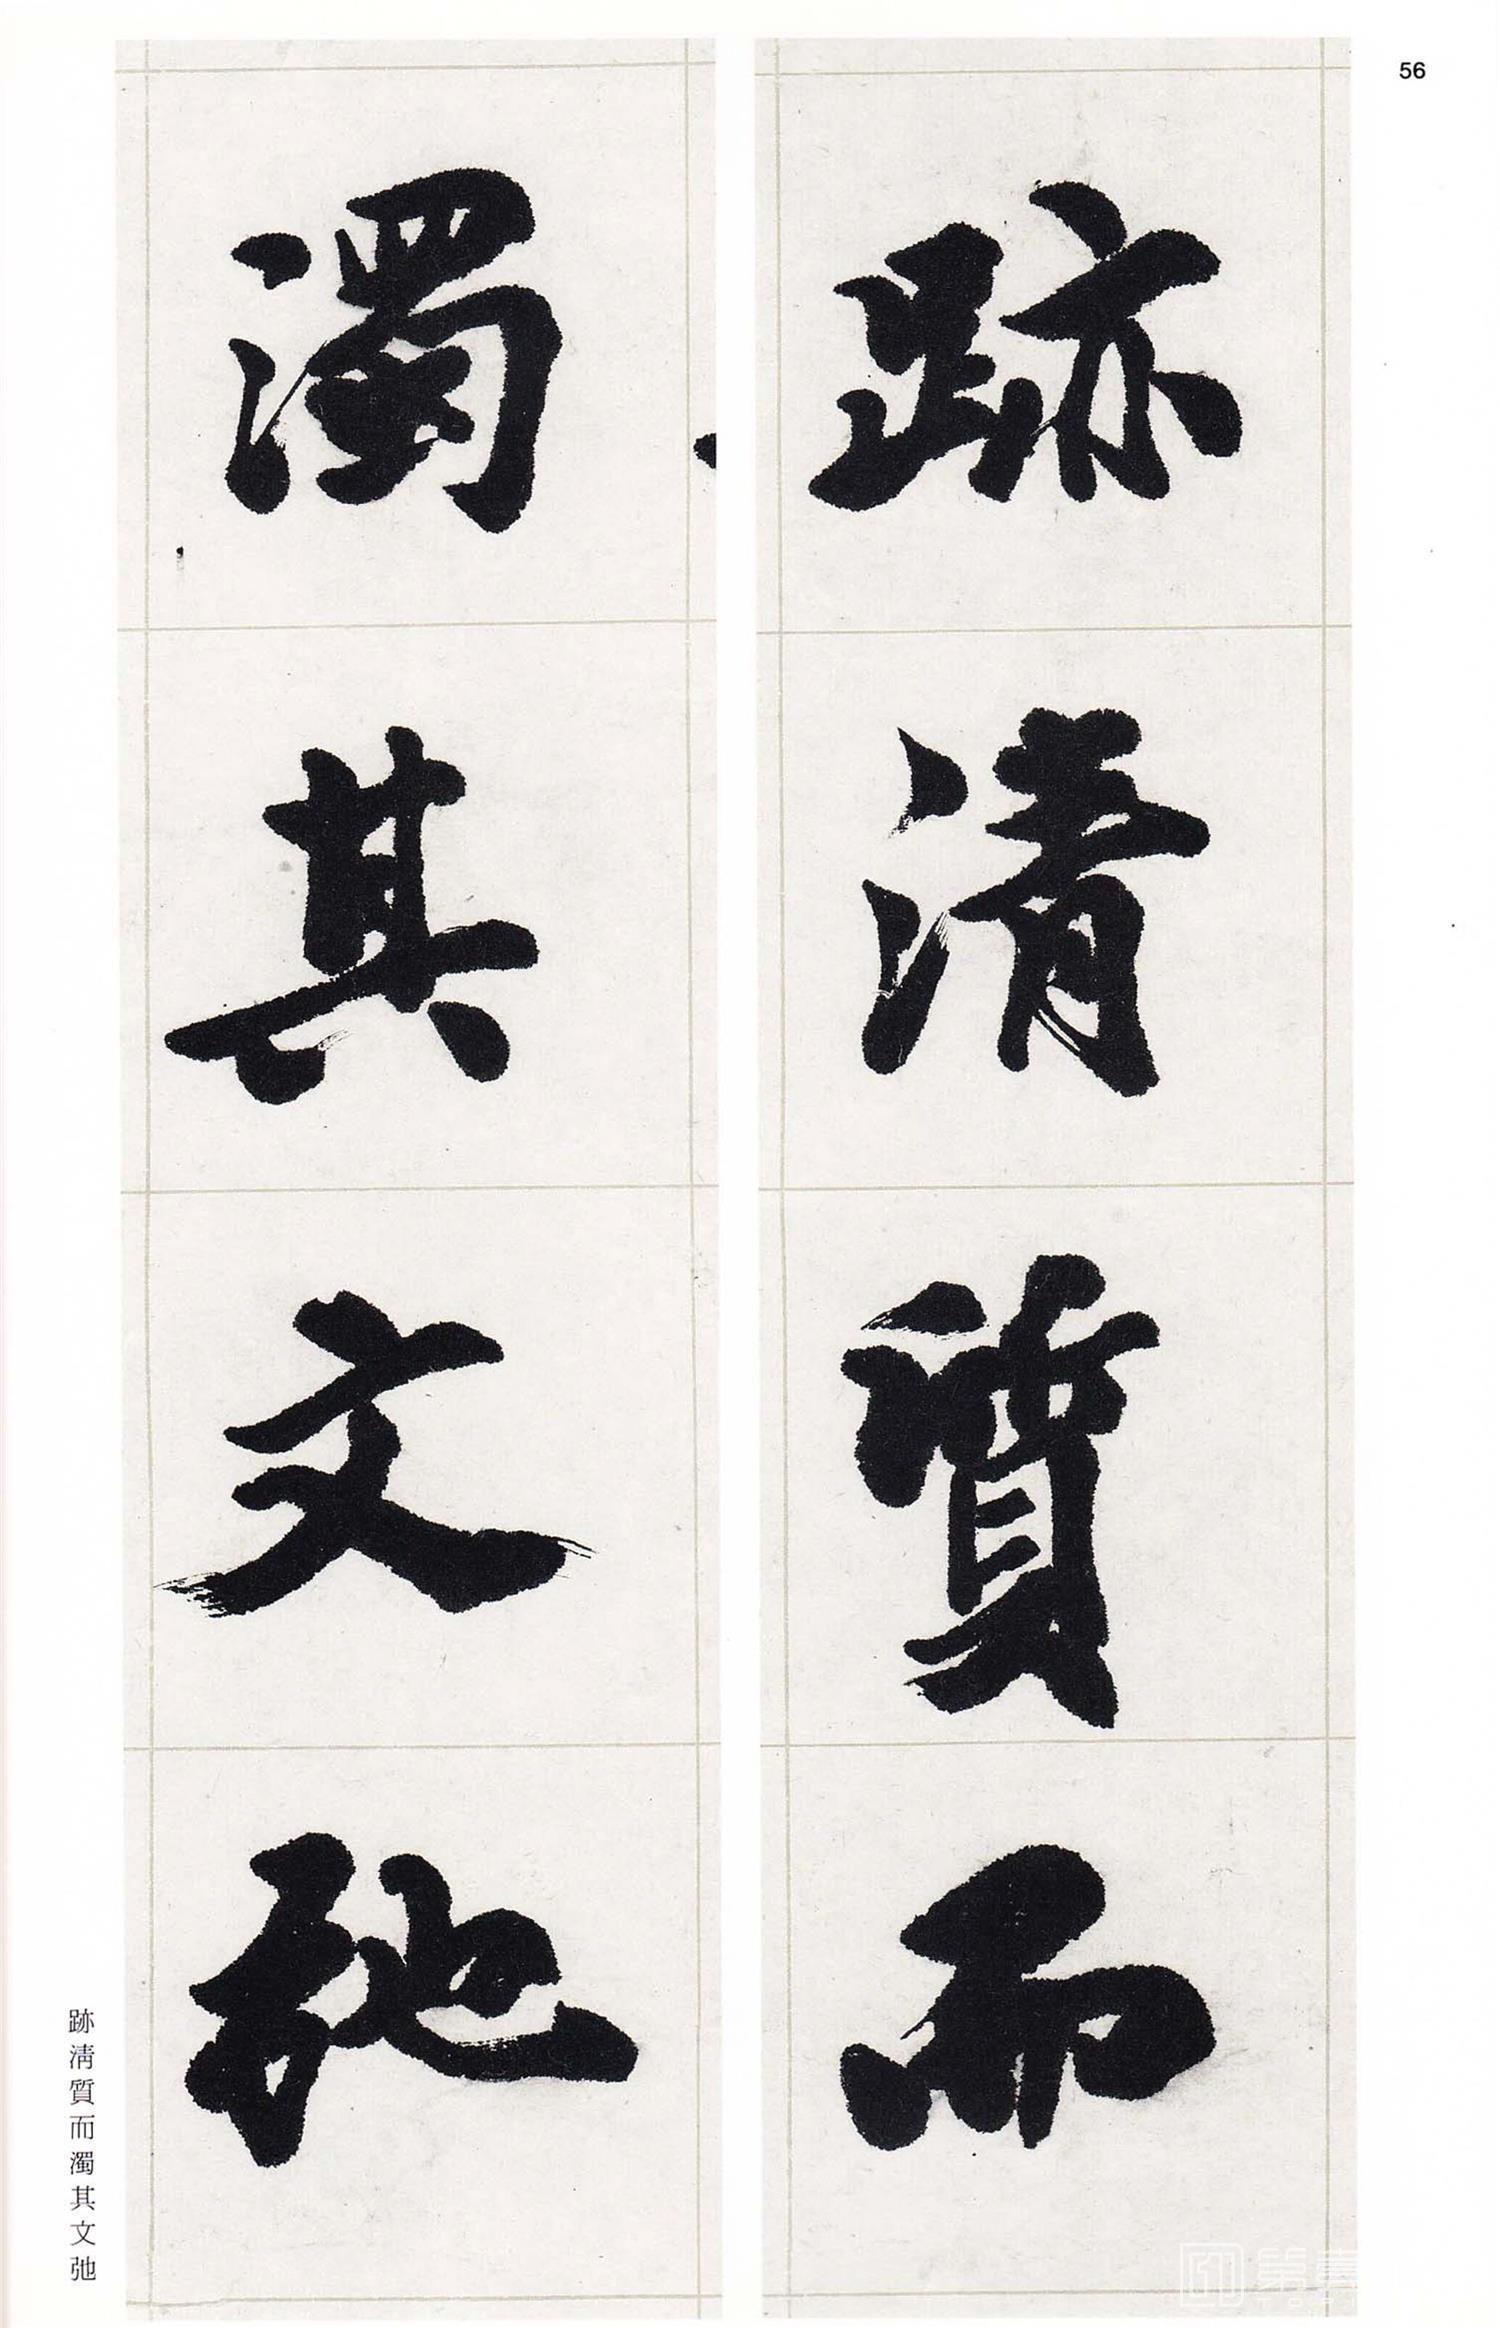 56
跡清質而
濁其文弛
跡清質而濁其文弛